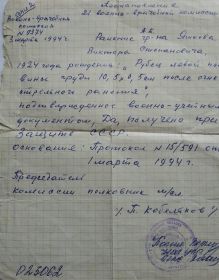 Военно-врачебная
комиссия
N 9374
3 марта 1994г.
Постановление
21 военно-врачебной комиссии
Ранение гр-на
Виктора Степановича,
1924 года рождения, "Рубец левой поло
вины груди 10,5 х 0,5см после огне
стрельного ранения",
подтвержденное военно-учетным
документом, Да, получено при
Защите СССР.
Основания: Протокол N 15/591 от
1 марта 1994г.
Председатель
комиссии полковник м/сл.